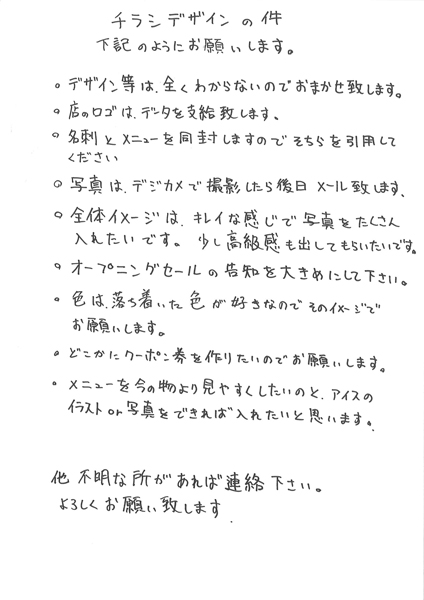 チラシデザインの件
下記のようにお願いします。
○ デザイン等は、全くわからないのでおまかせ致します。
○ 店のロゴは、データを支給致します、
○ 名刺とメニューを同封しますのでそちらを引用して
ください
○ 写真は、デジカメで撮影したら後日メール致します、
○ 全体イメージは、キレイな感じで写真をたくさん
入れたいです。少し高級感も出してもらいたいです。
○ オープニングセールの告知を大きめにして下さい。
○ 色は、落ち着いた色が好きなのでそのイメージで
お願いします。
○ どこかにクーポン券を作りたいのでお願いします。
○ メニューを今の物より見やすくしたいのと、アイスの
イラストor写真をできれば入れたいと思います。
他不明な所があれば連絡下さい。
よろしくお願い致します.